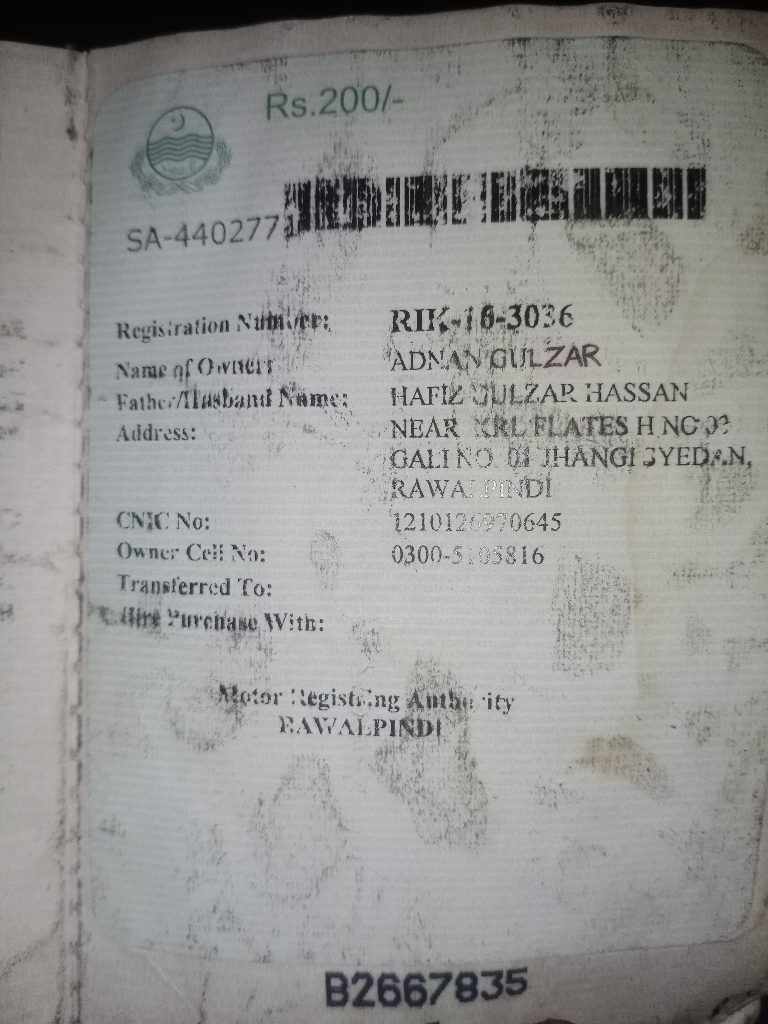 Rs.200/-
SA-4402771
Registration Number: RIK-16-3036
Name of Owner: ADNAN GULZAR
Father/Husband Name: HAFIZ GULZAR HASSAN
Address: NEAR KRL FLATES H NO
GALI NO. 01 JHANGI SYEDAN,
RAWALPINDI
CNIC No:
Owner Cell No:
Transferred To:
Hire Purchase With:
Motor Registring Authority
RAWALPINDI
B2667835